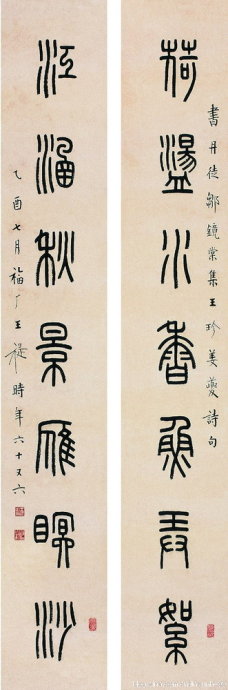 書丹徒鄒鏡棠集王珍姜夔詩句
荷盪水香魚弄絮
江涵秋景雁瞑沙
乙酉七月福厂王禔時年六十又六